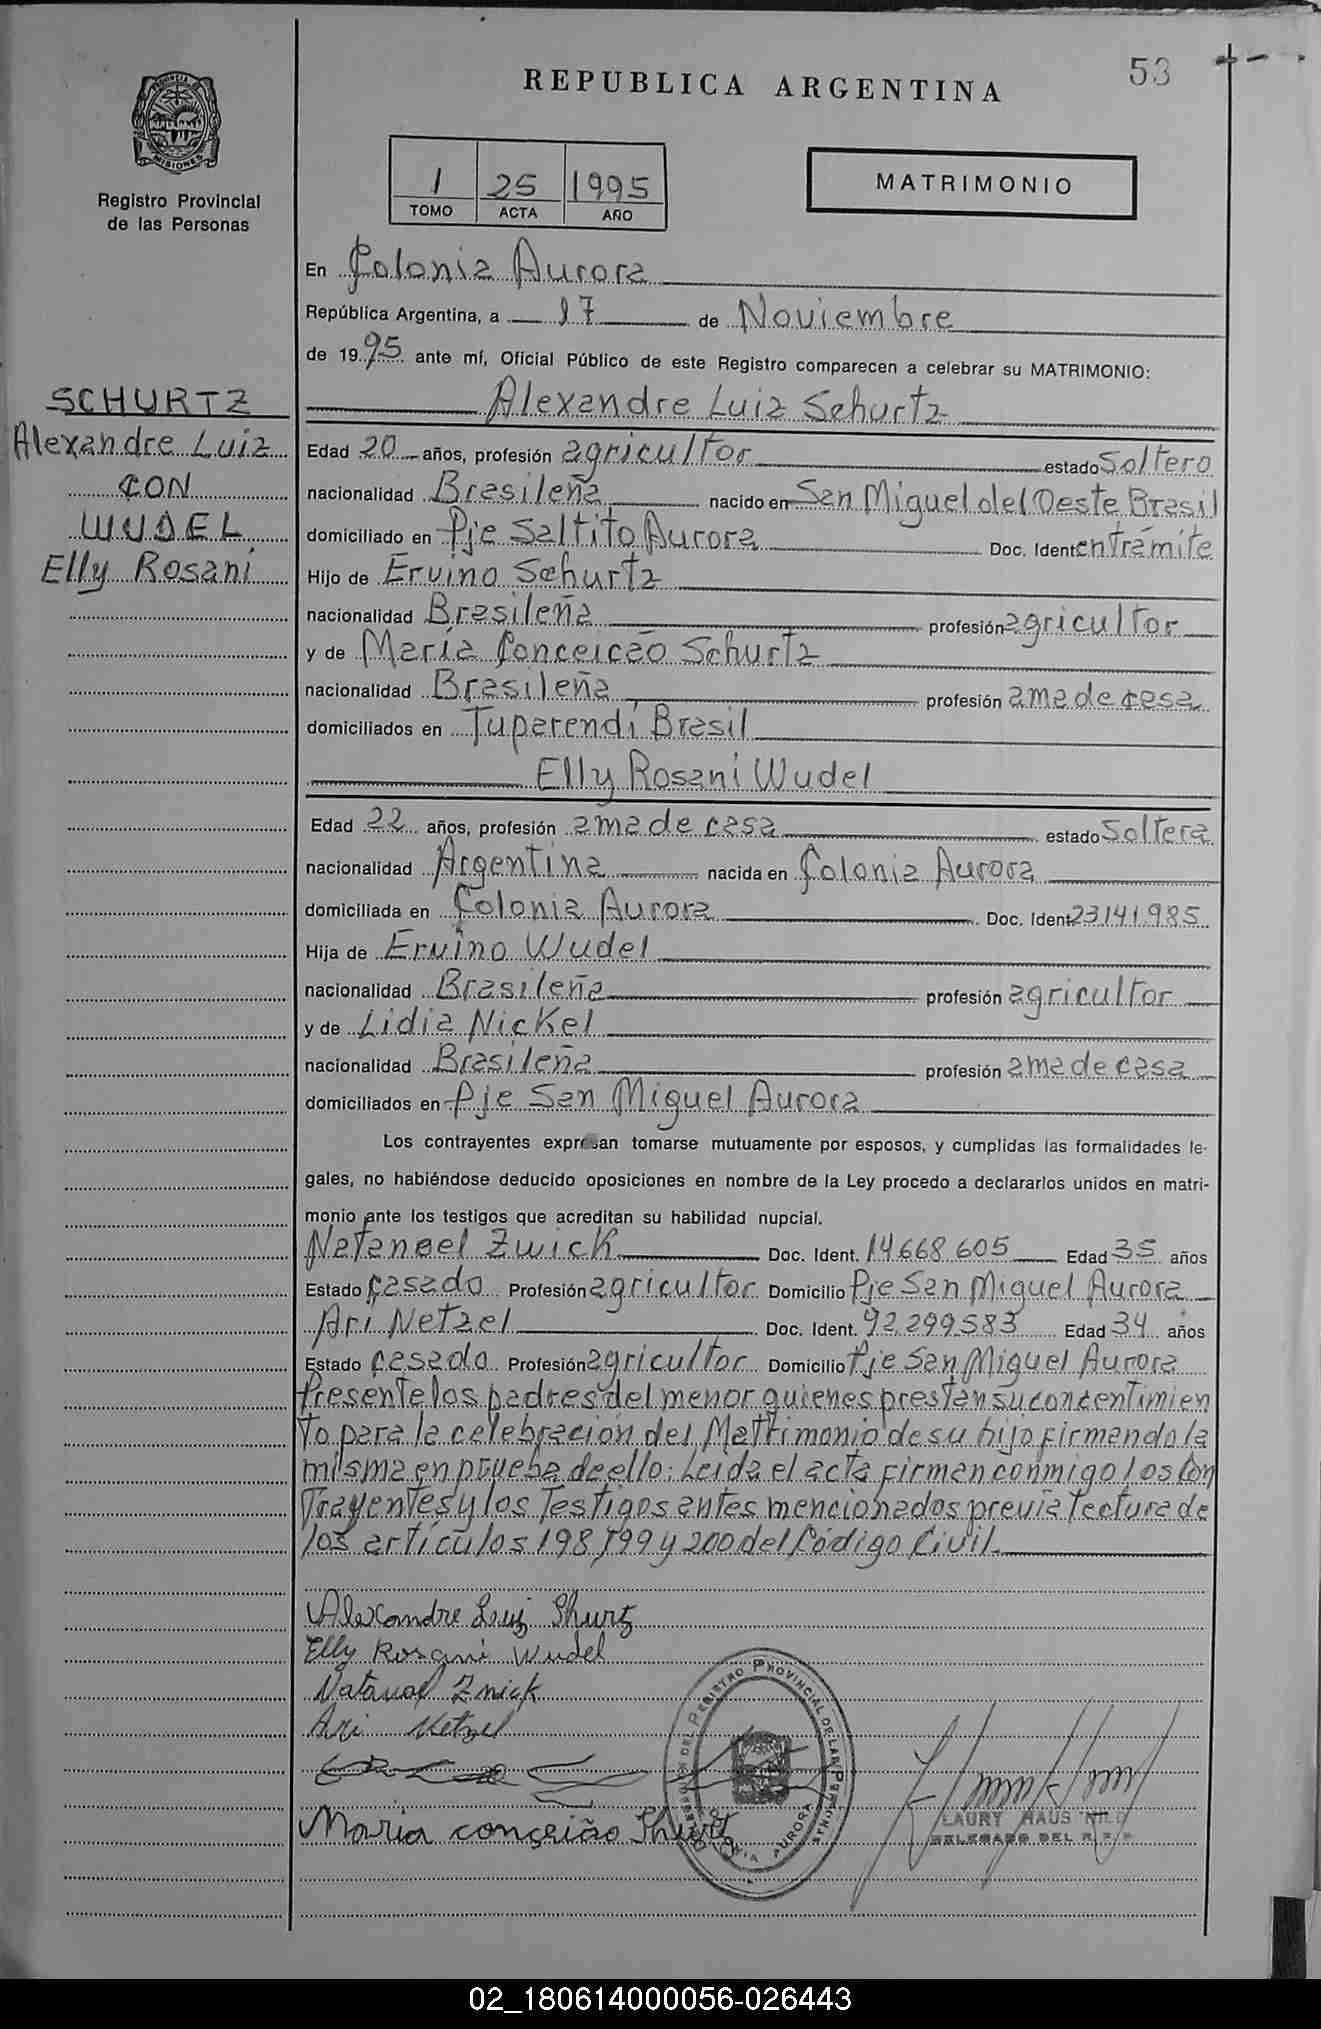 REPUBLICA ARGENTINA
53
PROVINCIA DE
MISIONES
Registro Provincial
de las Personas
1 25 1995
TOMO ACTA AÑO
MATRIMONIO
En Colonia Aurora
República Argentina, a 17 de Noviembre
de 1995 ante mí, Oficial Público de este Registro comparecen a celebrar su MATRIMONIO:
SCHURTZ
Alexandre Luiz
CON
WUDEL
Elly Rosani
Alexandre Luiz Schurtz
Edad 20 años, profesión agricultor estado Soltero
nacionalidad Brasileña nacido en San Miguel del Oeste Brasil
domiciliado en Pje Saltito Aurora Doc. Ident. en trámite
Hijo de Ervino Schurtz
nacionalidad Brasileña profesión agricultor
y de María Conceicão Schurtz
nacionalidad Brasileña profesión ama de casa
domiciliados en Tuparendí Brasil
Elly Rosani Wudel
Edad 22 años, profesión ama de casa estado Soltera
nacionalidad Argentina nacida en Colonia Aurora
domiciliada en Colonia Aurora Doc. Ident 23.141.985
Hija de Ervino Wudel
nacionalidad Brasileña profesión agricultor
y de Lidia Nickel
nacionalidad Brasileña profesión ama de casa
domiciliados en Pje San Miguel Aurora
Los contrayentes expresan tomarse mutuamente por esposos, y cumplidas las formalidades le-
gales, no habiéndose deducido oposiciones en nombre de la Ley procedo a declararlos unidos en matri-
monio ante los testigos que acreditan su habilidad nupcial.
Natanael Zwick Doc. Ident. 14.668.605 Edad 35 años
Estado casado Profesión agricultor Domicilio Pje San Miguel Aurora
Ari Netzel Doc. Ident. 92.299.583 Edad 34 años
Estado casado Profesión agricultor Domicilio Pje San Miguel Aurora
Presente los padres del menor quienes prestan su concentimien
to para la celebración del Matrimonio de su hijo firmando la
misma en prueba de ello: Leida el acta firman conmigo los Con
trayentes y los Testigos antes mencionados previa lectura de
los artículos 198 199 y 200 del Código Civil.
Alexandre Luiz Shurtz
Elly Rosani Wudel
Natanael Znick
Ari Netzel
Maria conçeição Shurtz
REGISTRO PROVINCIAL DE LAS PERSONAS
COLONIA AURORA
LAURY HAUS
DELEGADO DEL R. P. P.
02_180614000056-026443